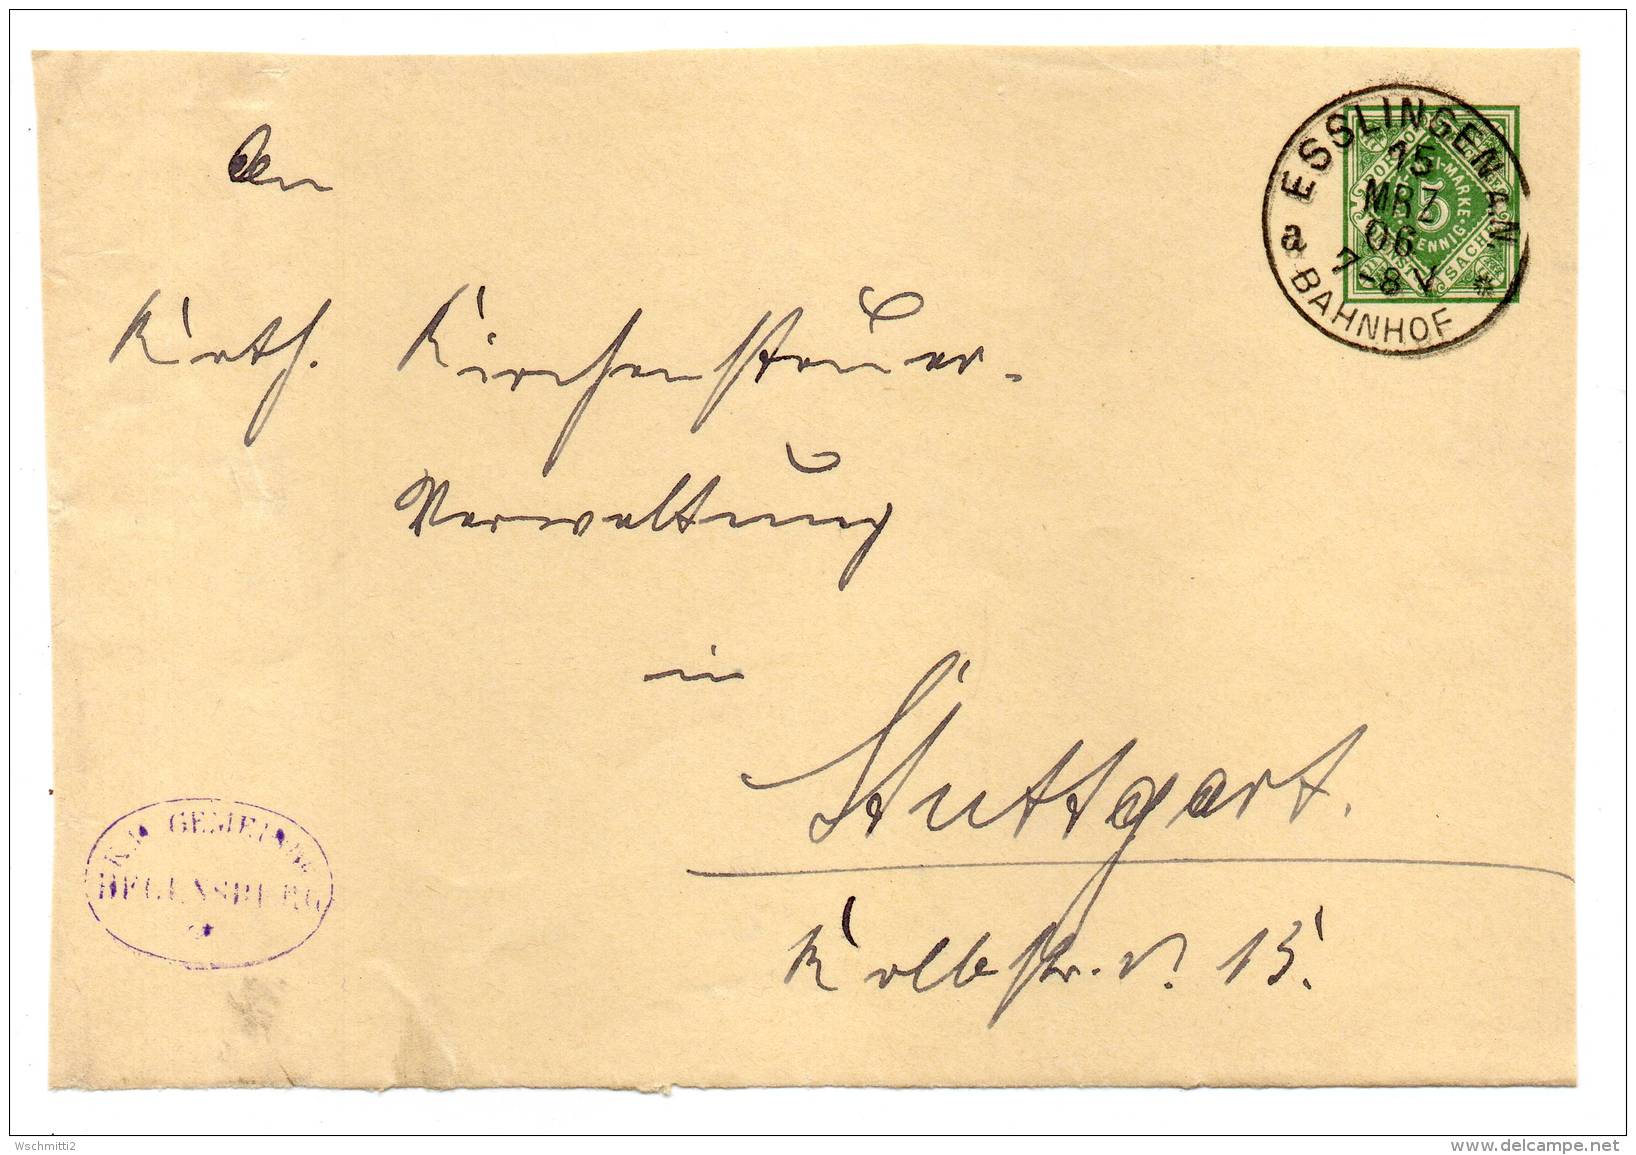 ESSLINGEN A.N.
15
MRZ
06
7-8 V
a BAHNHOF *
5
PFENNIG
den
Kath. Kirchensteuer-
Verwaltung
in
Stuttgart.
Kolbstr. N. 13.
K.W. GEMEINDE
HEGENSBERG
Wschmitti2
www.delcampe.net